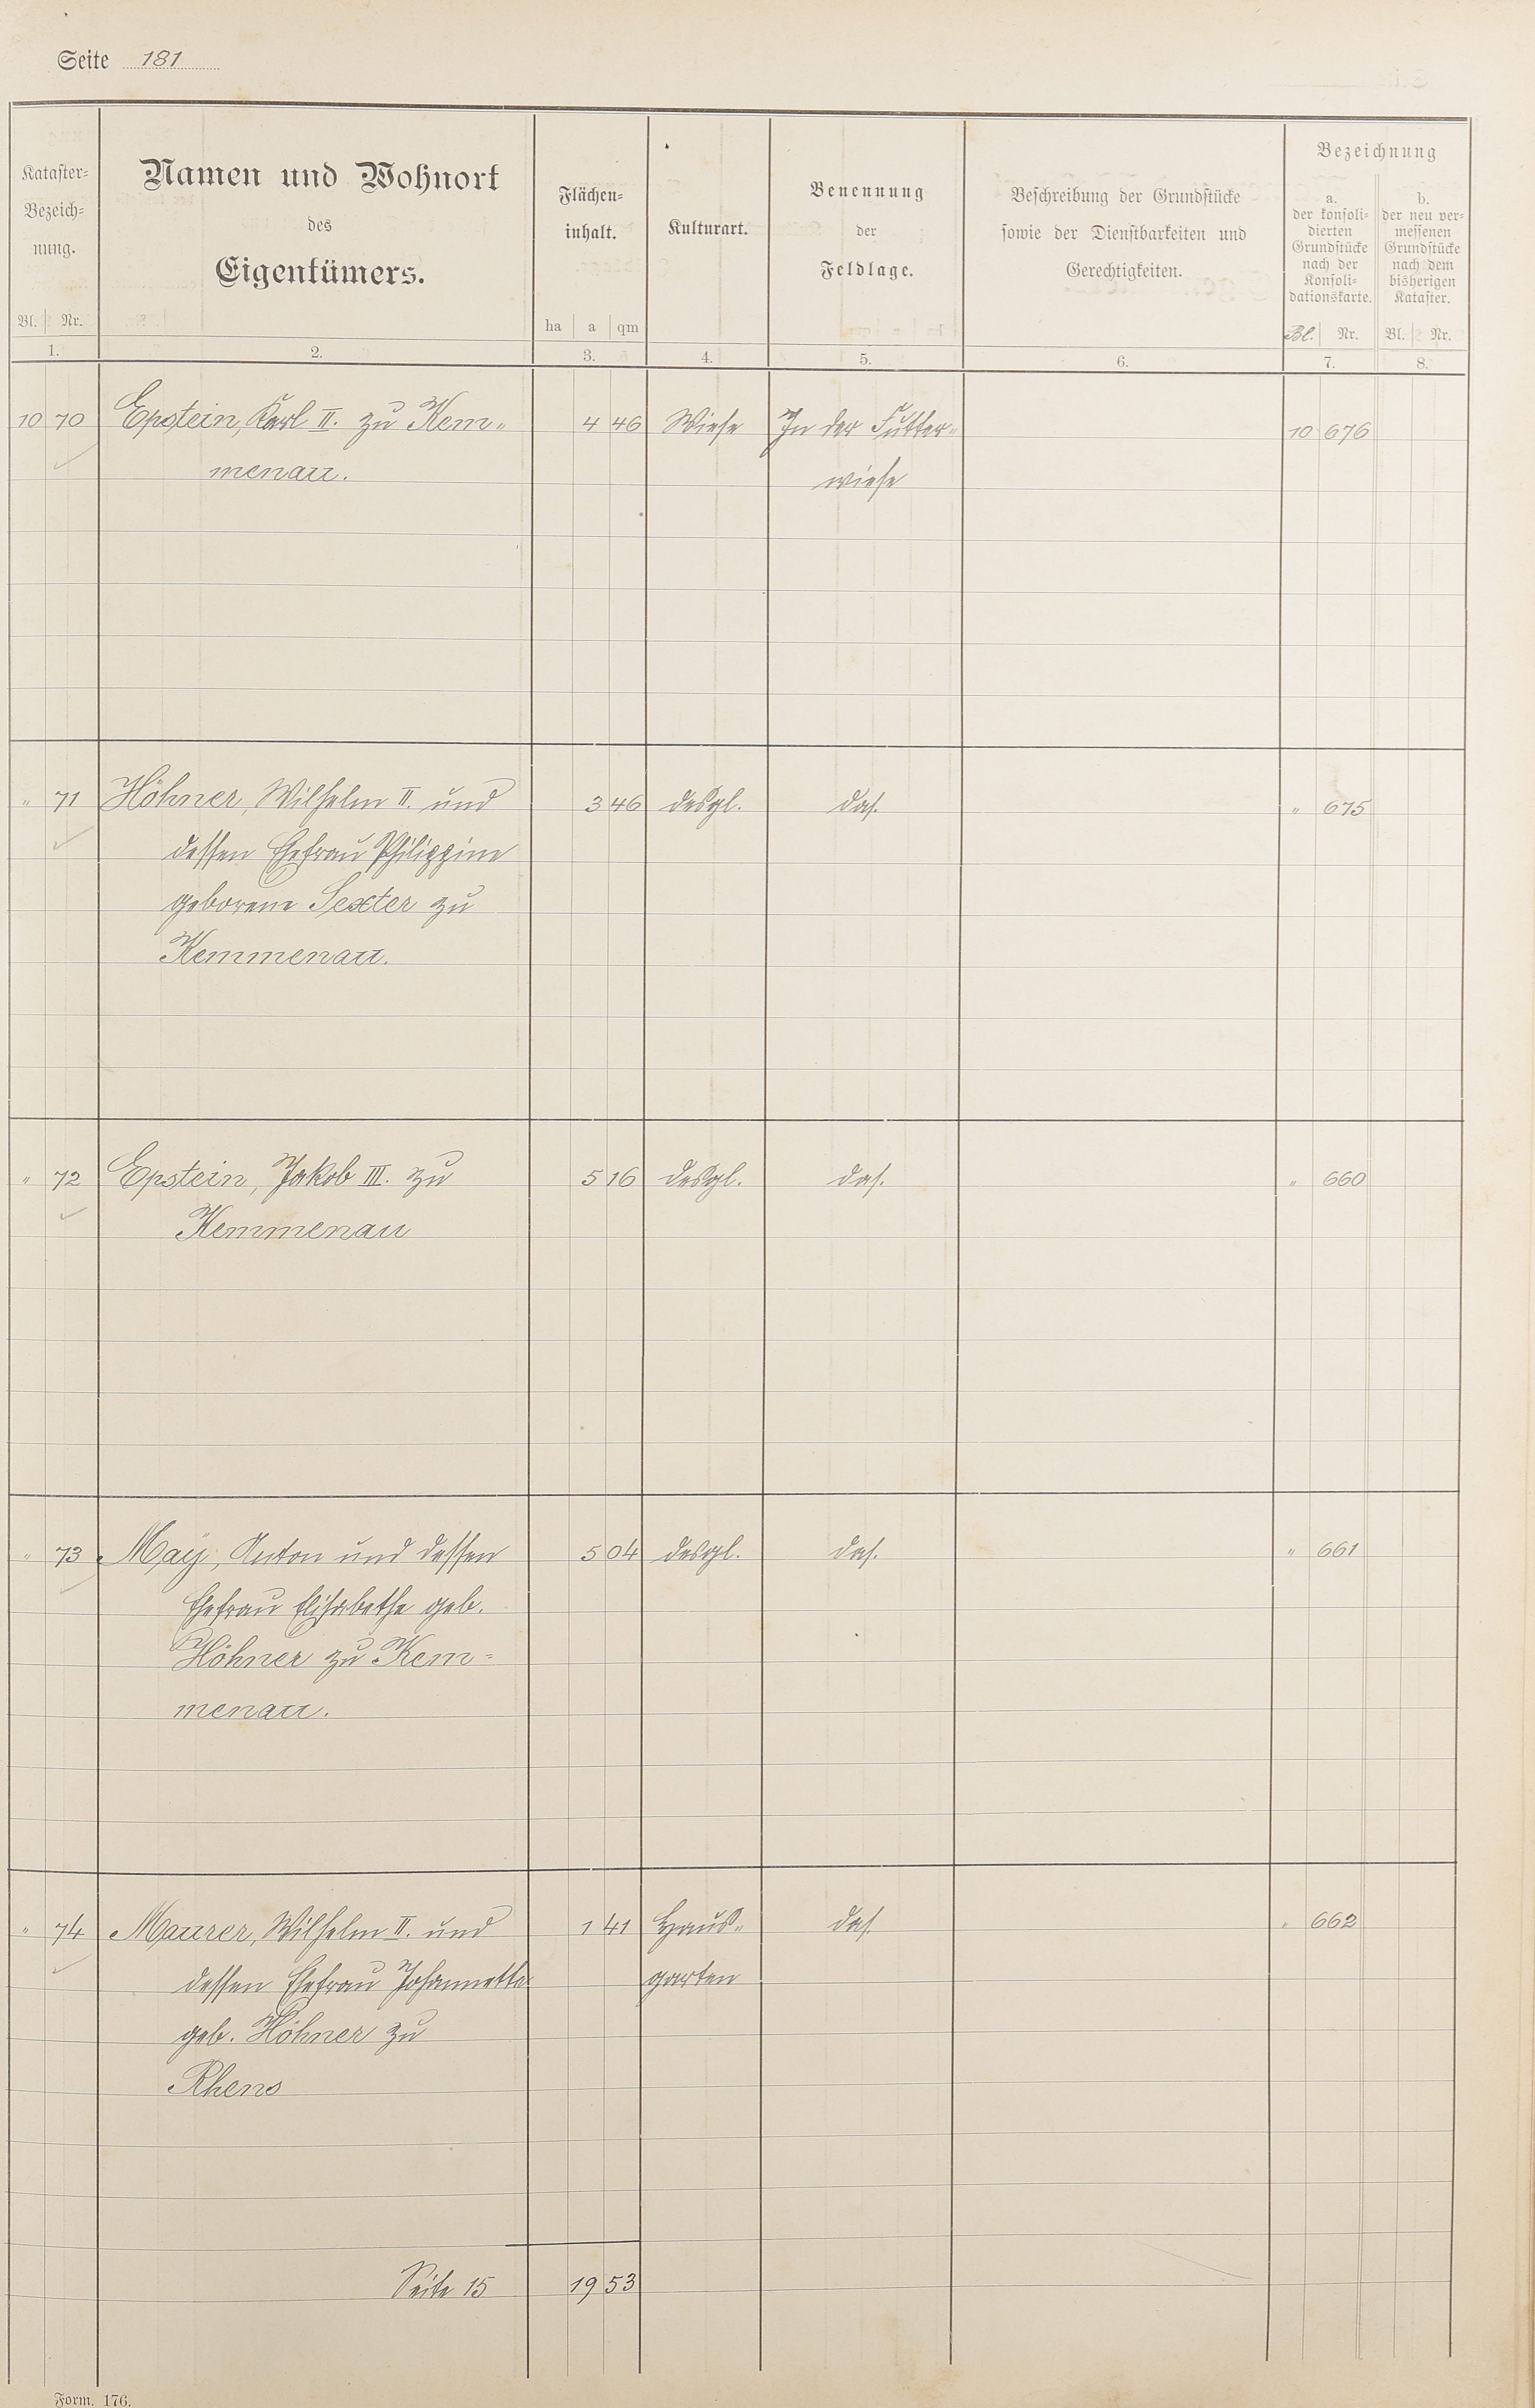 Seite 181
Kataster-
Bezeich-
nung.
Bl. Nr.
1.
Namen und Wohnort
des
Eigentümers.
2.
Flächen-
inhalt.
ha a qm
3.
Kulturart.
4.
Benennung
der
Feldlage.
5.
Beschreibung der Grundstücke
sowie der Dienstbarkeiten und
Gerechtigkeiten.
6.
Bezeichnung
a.
der konsoli-
dierten
Grundstücke
nach der
Konsoli-
dationskarte.
Bl. Nr.
7.
b.
der neu ver-
messenen
Grundstücke
nach dem
bisherigen
Kataster.
Bl. Nr.
8.
10 70 Epstein, Karl II. zu Kem- 4 46 Wiese In der Futter- 10 676
menau. wiese
" 71 Höhner, Wilhelm II. und 3 46 desgl. das. " 675
dessen Ehefrau Philippine
geborene Sexter zu
Kemmenau.
" 72 Epstein, Jakob III. zu 5 16 desgl. das. " 660
Kemmenau
" 73 May, Anton und dessen 5 04 desgl. das. " 661
Ehefrau Elisabethe geb.
Höhner zu Kem-
menau.
" 74 Maurer, Wilhelm II. und 1 41 Haus- das. " 662
dessen Ehefrau Johannette garten
geb. Höhner zu
Rhens
Seite 15 19 53
Form. 176.